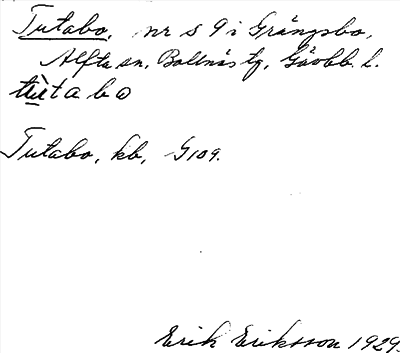 Tutabo, nr s 9 i Grängsbo,
Alfta sn, Bollnäs tg, Gävleb. l.
tùtabo
Tutabo, kb, G109.
Erik Eriksson 1929.